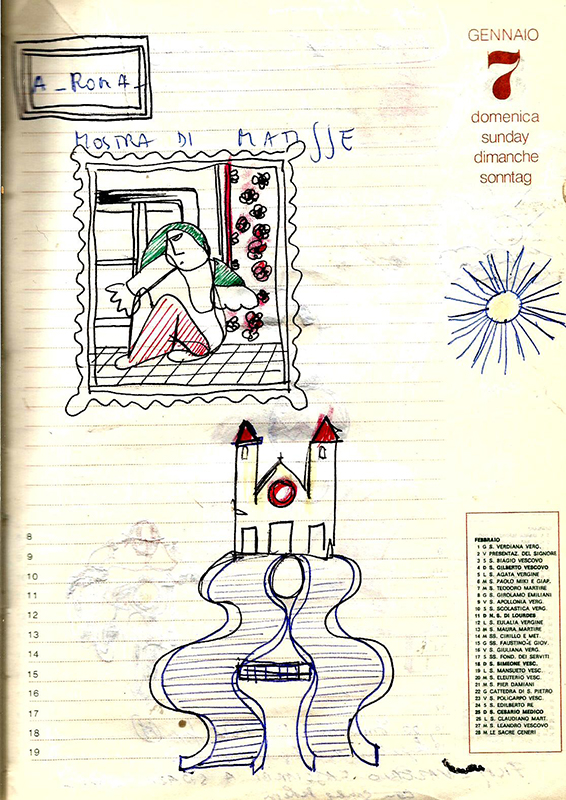 GENNAIO
7
domenica
sunday
dimanche
sonntag
A_ROMA_
MOSTRA DI MATISSE
8
9
10
11
12
13
14
15
16
17
18
19
FEBBRAIO
1 G S. VERDIANA VERG.
2 V PRESENTAZ. DEL SIGNORE
3 S S. BIAGIO VESCOVO
4 D S. GILBERTO VESCOVO
5 L S. AGATA VERGINE
6 M S. PAOLO MIKI E GIAP.
7 M S. TEODORO MARTIRE
8 G S. GIROLAMO EMILIANI
9 V S. APOLLONIA VERG.
10 S S. SCOLASTICA VERG.
11 D N. S. DI LOURDES
12 L S. EULALIA VERGINE
13 M S. MAURA MARTIRE
14 M SS. CIRILLO E MET.
15 G SS. FAUSTINO E GIOV.
16 V S. GIULIANA VERG.
17 S SS. FOND. DEI SERVITI
18 D S. SIMEONE VESC.
19 L S. MANSUETO VESC.
20 M S. ELEUTERIO VESC.
21 M S. PIER DAMIANI
22 G CATTEDRA DI S. PIETRO
23 V S. POLICARPO VESC.
24 S S. EDILBERTO RE
25 D S. CESARIO MEDICO
26 L S. CLAUDIANO MART.
27 M S. LEANDRO VESCOVO
28 M LE SACRE CENERI